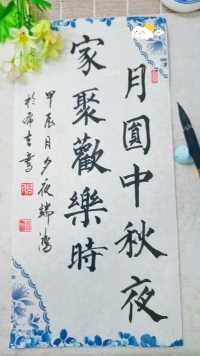 月圓中秋夜
家聚歡樂時
甲辰月夕夜端鴻
於布吉書